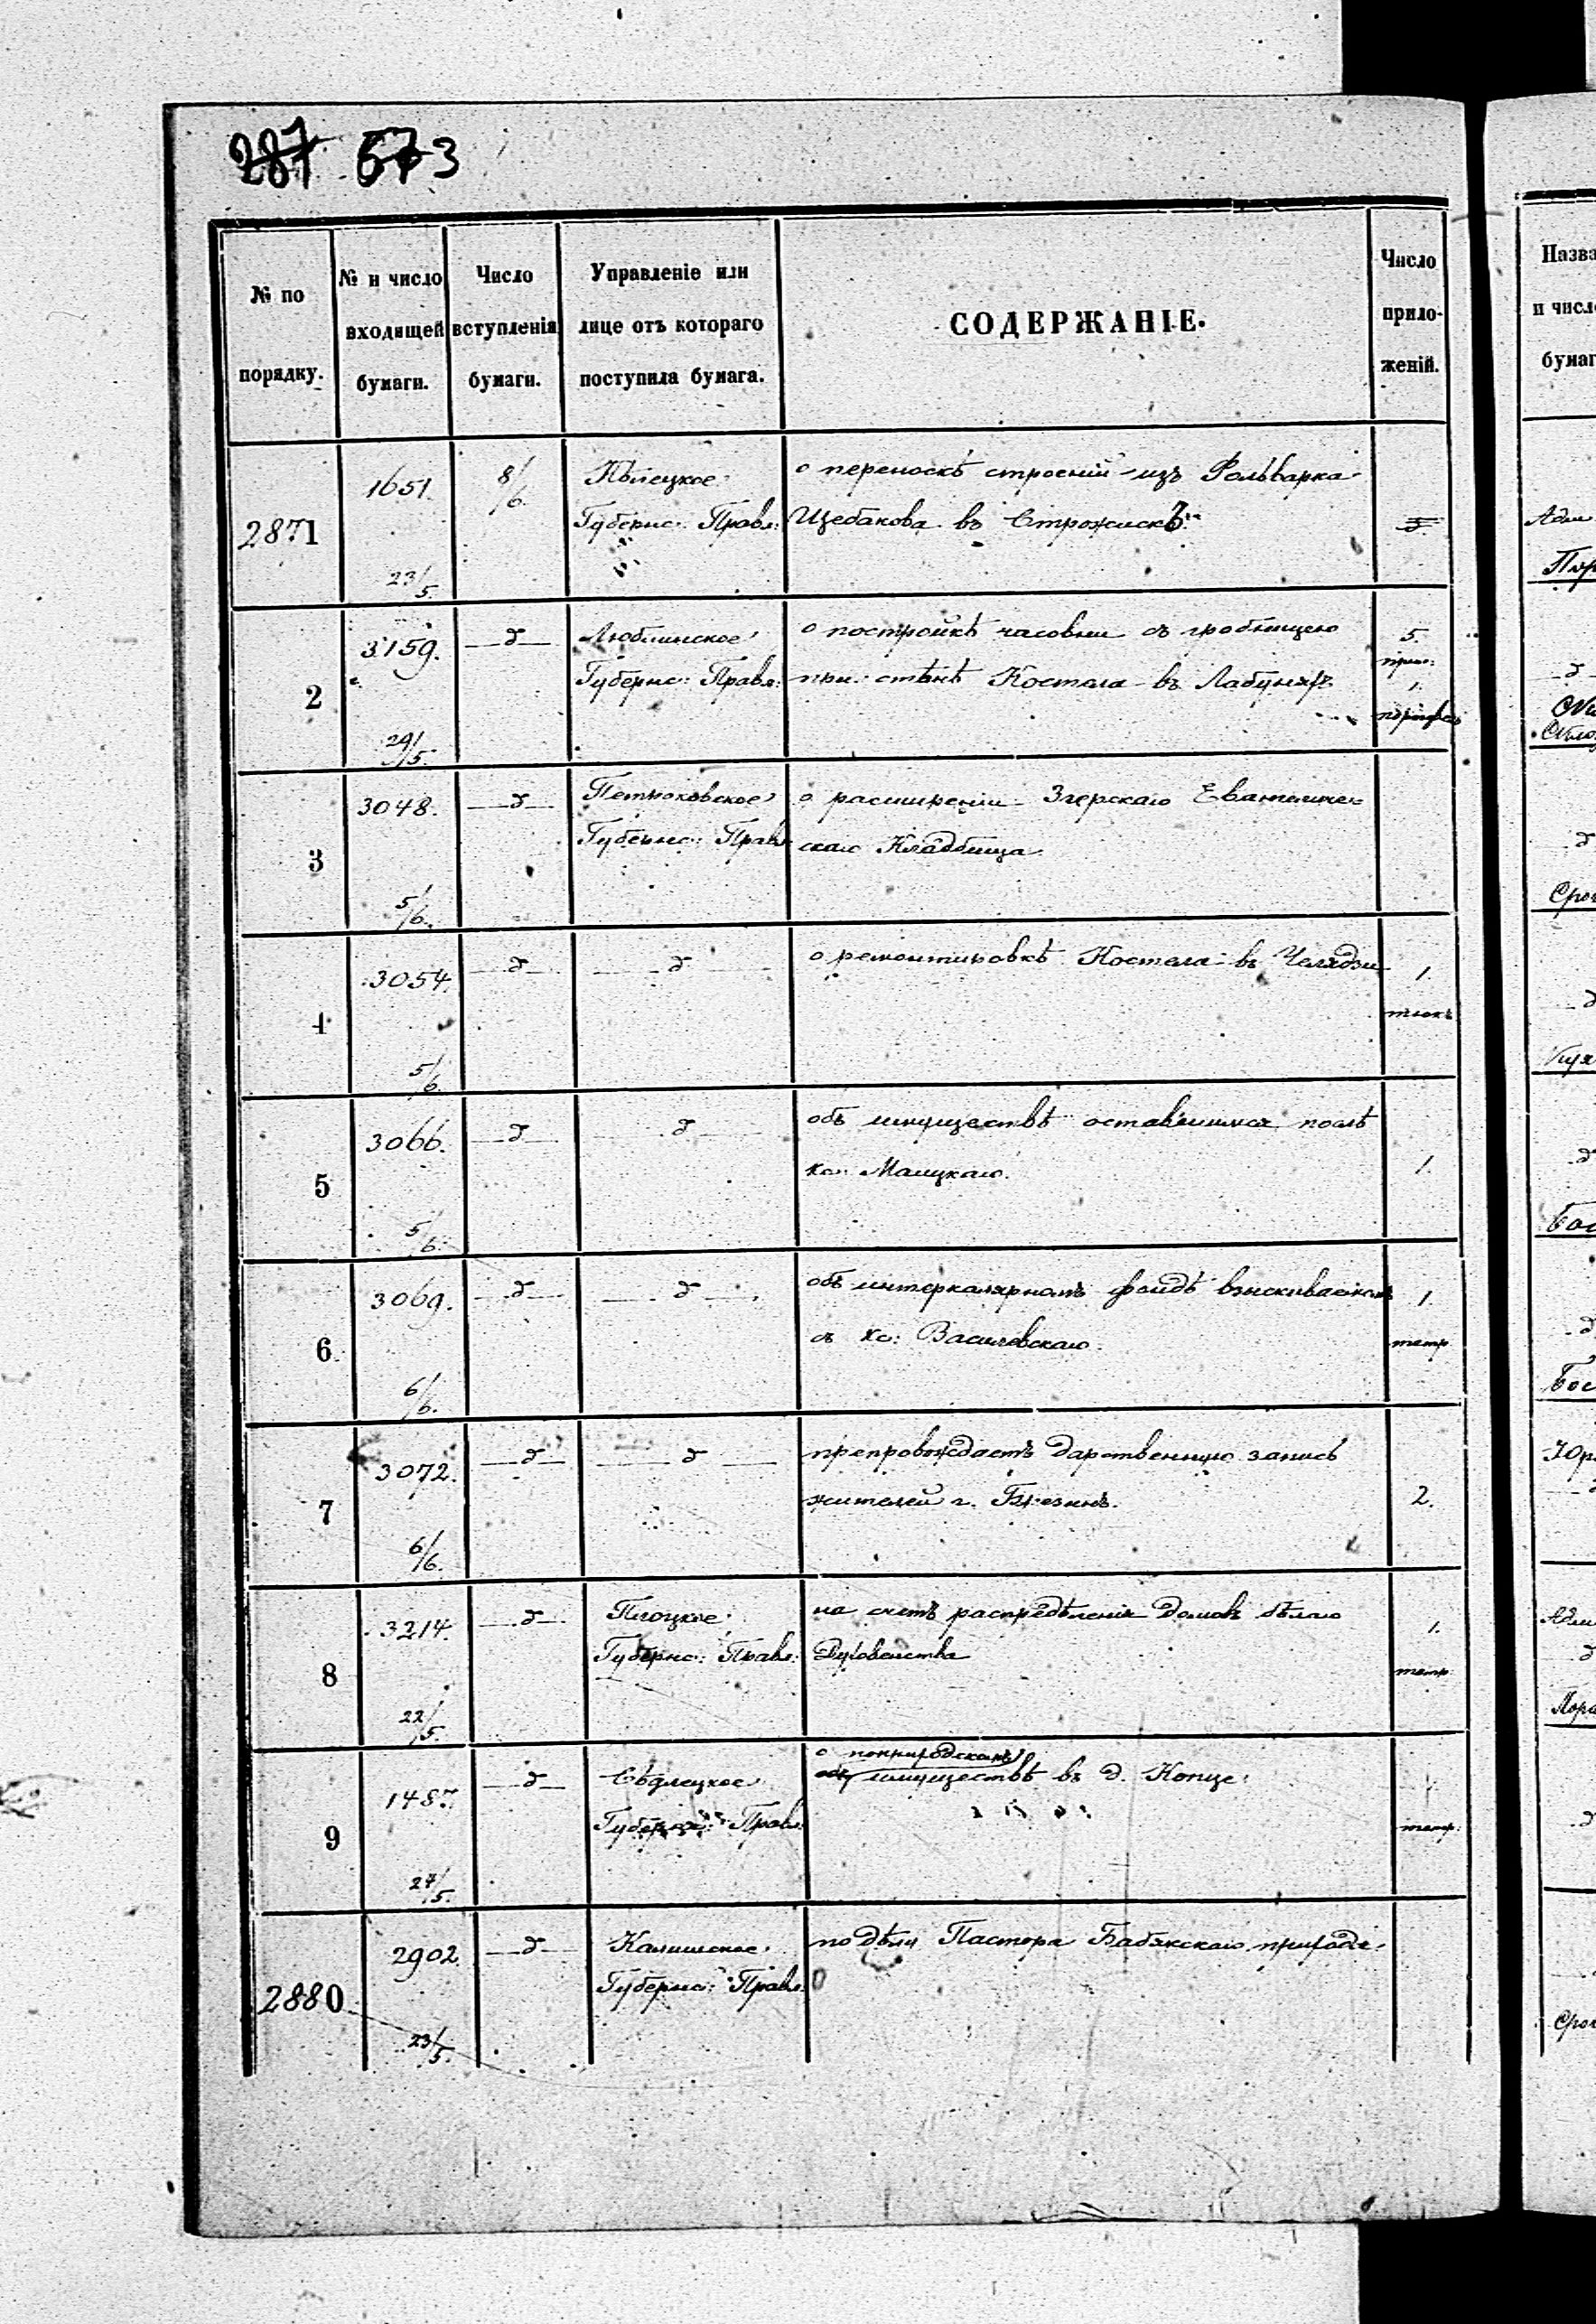 287 573
№ по порядку.
№ и число входящей бумаги.
Число вступленія бумаги.
Управленіе или лице отъ котораго поступила бумага.
СОДЕРЖАНІЕ.
Число приложеній.
2871
1651.
23/5.
8/6.
Кѣлецкое
Губернс: Правл:
о переноскѣ строеній изъ Фольварка
Щебакова въ Строжискѣ
2
3159.
29/5.
д
Люблинское
Губернс: Правл:
о постройкѣ часовни съ гробницею
при стѣнѣ Костела въ Лабуняхъ
5.
1.
3
3048.
5/6.
д
Петроковское
Губернс: Правл
о расширеніи Згерскаго Евангеличе=
скаго Кладбища
4
3054.
5/6.
д
д
о ремонтировкѣ Костела въ Челядзи
1.
5
3066.
5/6.
д
д
объ имуществѣ оставшимся послѣ
1.
6
3069.
6/6.
д
д
объ интеркалярномъ фондѣ взыскиваемомъ
съ кс: Василевскаго.
1.
тетр
7
3072.
6/6.
д
д
препровождаетъ дарственную запись
жителей г. Брезинъ.
2.
8
3214.
22/5.
д
Плоцкое
Губернс: Правл:
на счетъ распредѣленія домовъ бѣлаго
Духовенства
1.
тетр
9
1487.
27/5.
д
Сѣдлецкое
Губернс: Правл:
имуществѣ въ д. Копце
тетр:
2880
2902
23/5.
д
Калишское
Губернс: Правл.
по дѣлу Пастора Бабякскаго прихода